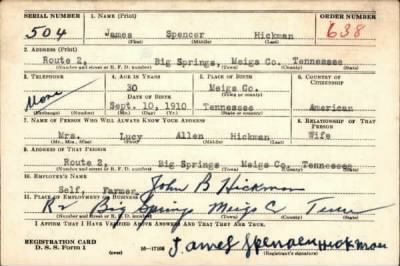 SERIAL NUMBER 1. NAME (Print) ORDER NUMBER
504 James Spencer Hickman 638
(First) (Middle) (Last)
2. ADDRESS (Print)
Route 2, Big Springs, Meigs Co. Tennessee
(Number and street or R. F. D. number) (Town) (County) (State)
3. TELEPHONE 4. AGE IN YEARS 5. PLACE OF BIRTH 6. COUNTRY OF CITIZENSHIP
None 30 Meigs Co.
DATE OF BIRTH (Town or county)
Sept. 10, 1910 Tennessee American
(Exchange) (Number) (Mo.) (Day) (Yr.) (State or country)
7. NAME OF PERSON WHO WILL ALWAYS KNOW YOUR ADDRESS 8. RELATIONSHIP OF THAT PERSON
Mrs. Lucy Allen Hickman Wife
(Mr., Mrs., Miss) (First) (Middle) (Last)
9. ADDRESS OF THAT PERSON
Route 2, Big Springs Meigs Co. Tennessee
(Number and street or R. F. D. number) (Town) (County) (State)
10. EMPLOYER'S NAME
Self, Farmer John B Hickman
11. PLACE OF EMPLOYMENT OR BUSINESS
R2 Big Springs Meigs C Tenn
(Number and street or R. F. D. number) (Town) (County) (State)
I AFFIRM THAT I HAVE VERIFIED ABOVE ANSWERS AND THAT THEY ARE TRUE.
REGISTRATION CARD
D. S. S. Form 1 16-17105 James Spencer Hickman